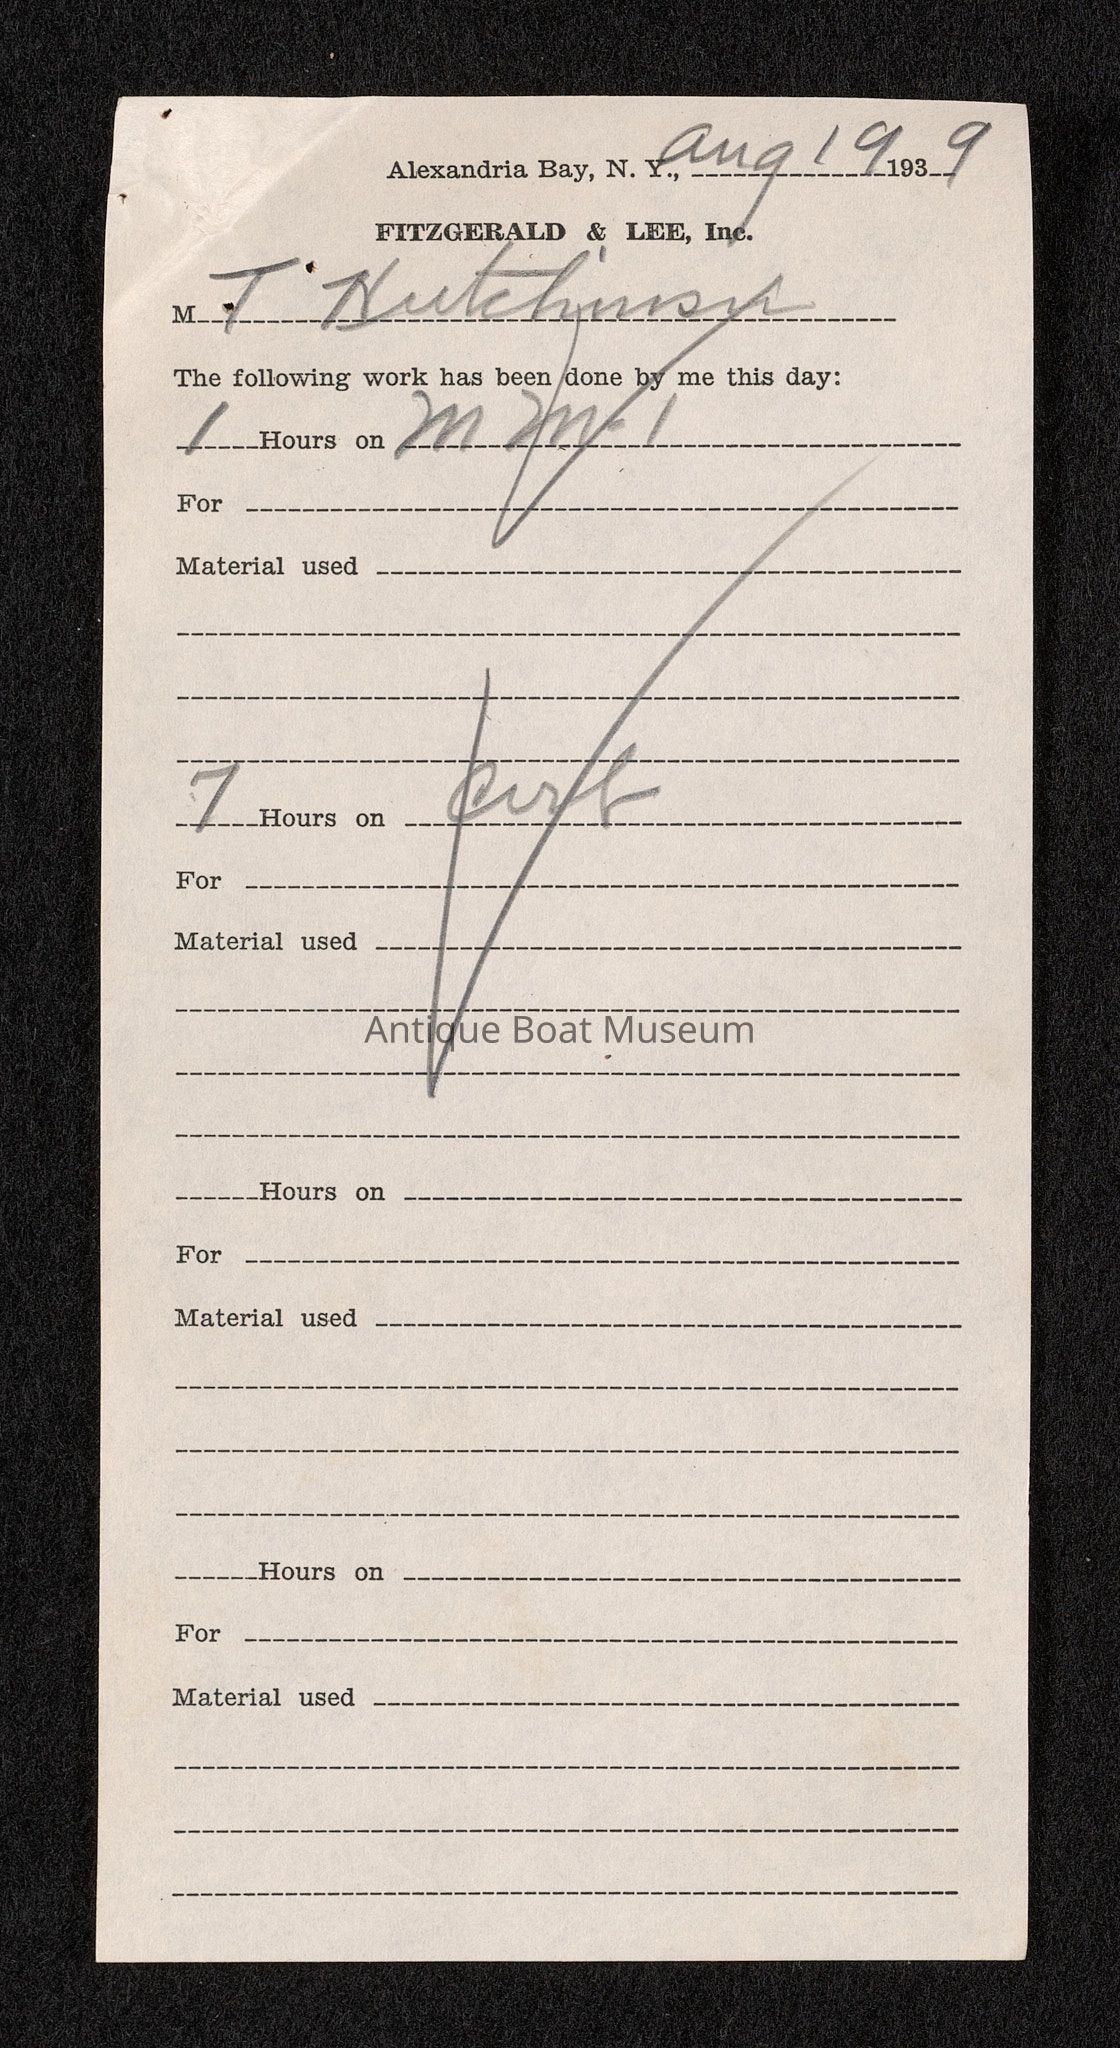 Alexandria Bay, N. Y., Aug 19 1939
FITZGERALD & LEE, Inc.
M T Hutchinson
The following work has been done by me this day:
1 Hours on M M 1
For
Material used
7 Hours on
For
Material used
Antique Boat Museum
Hours on
For
Material used
Hours on
For
Material used